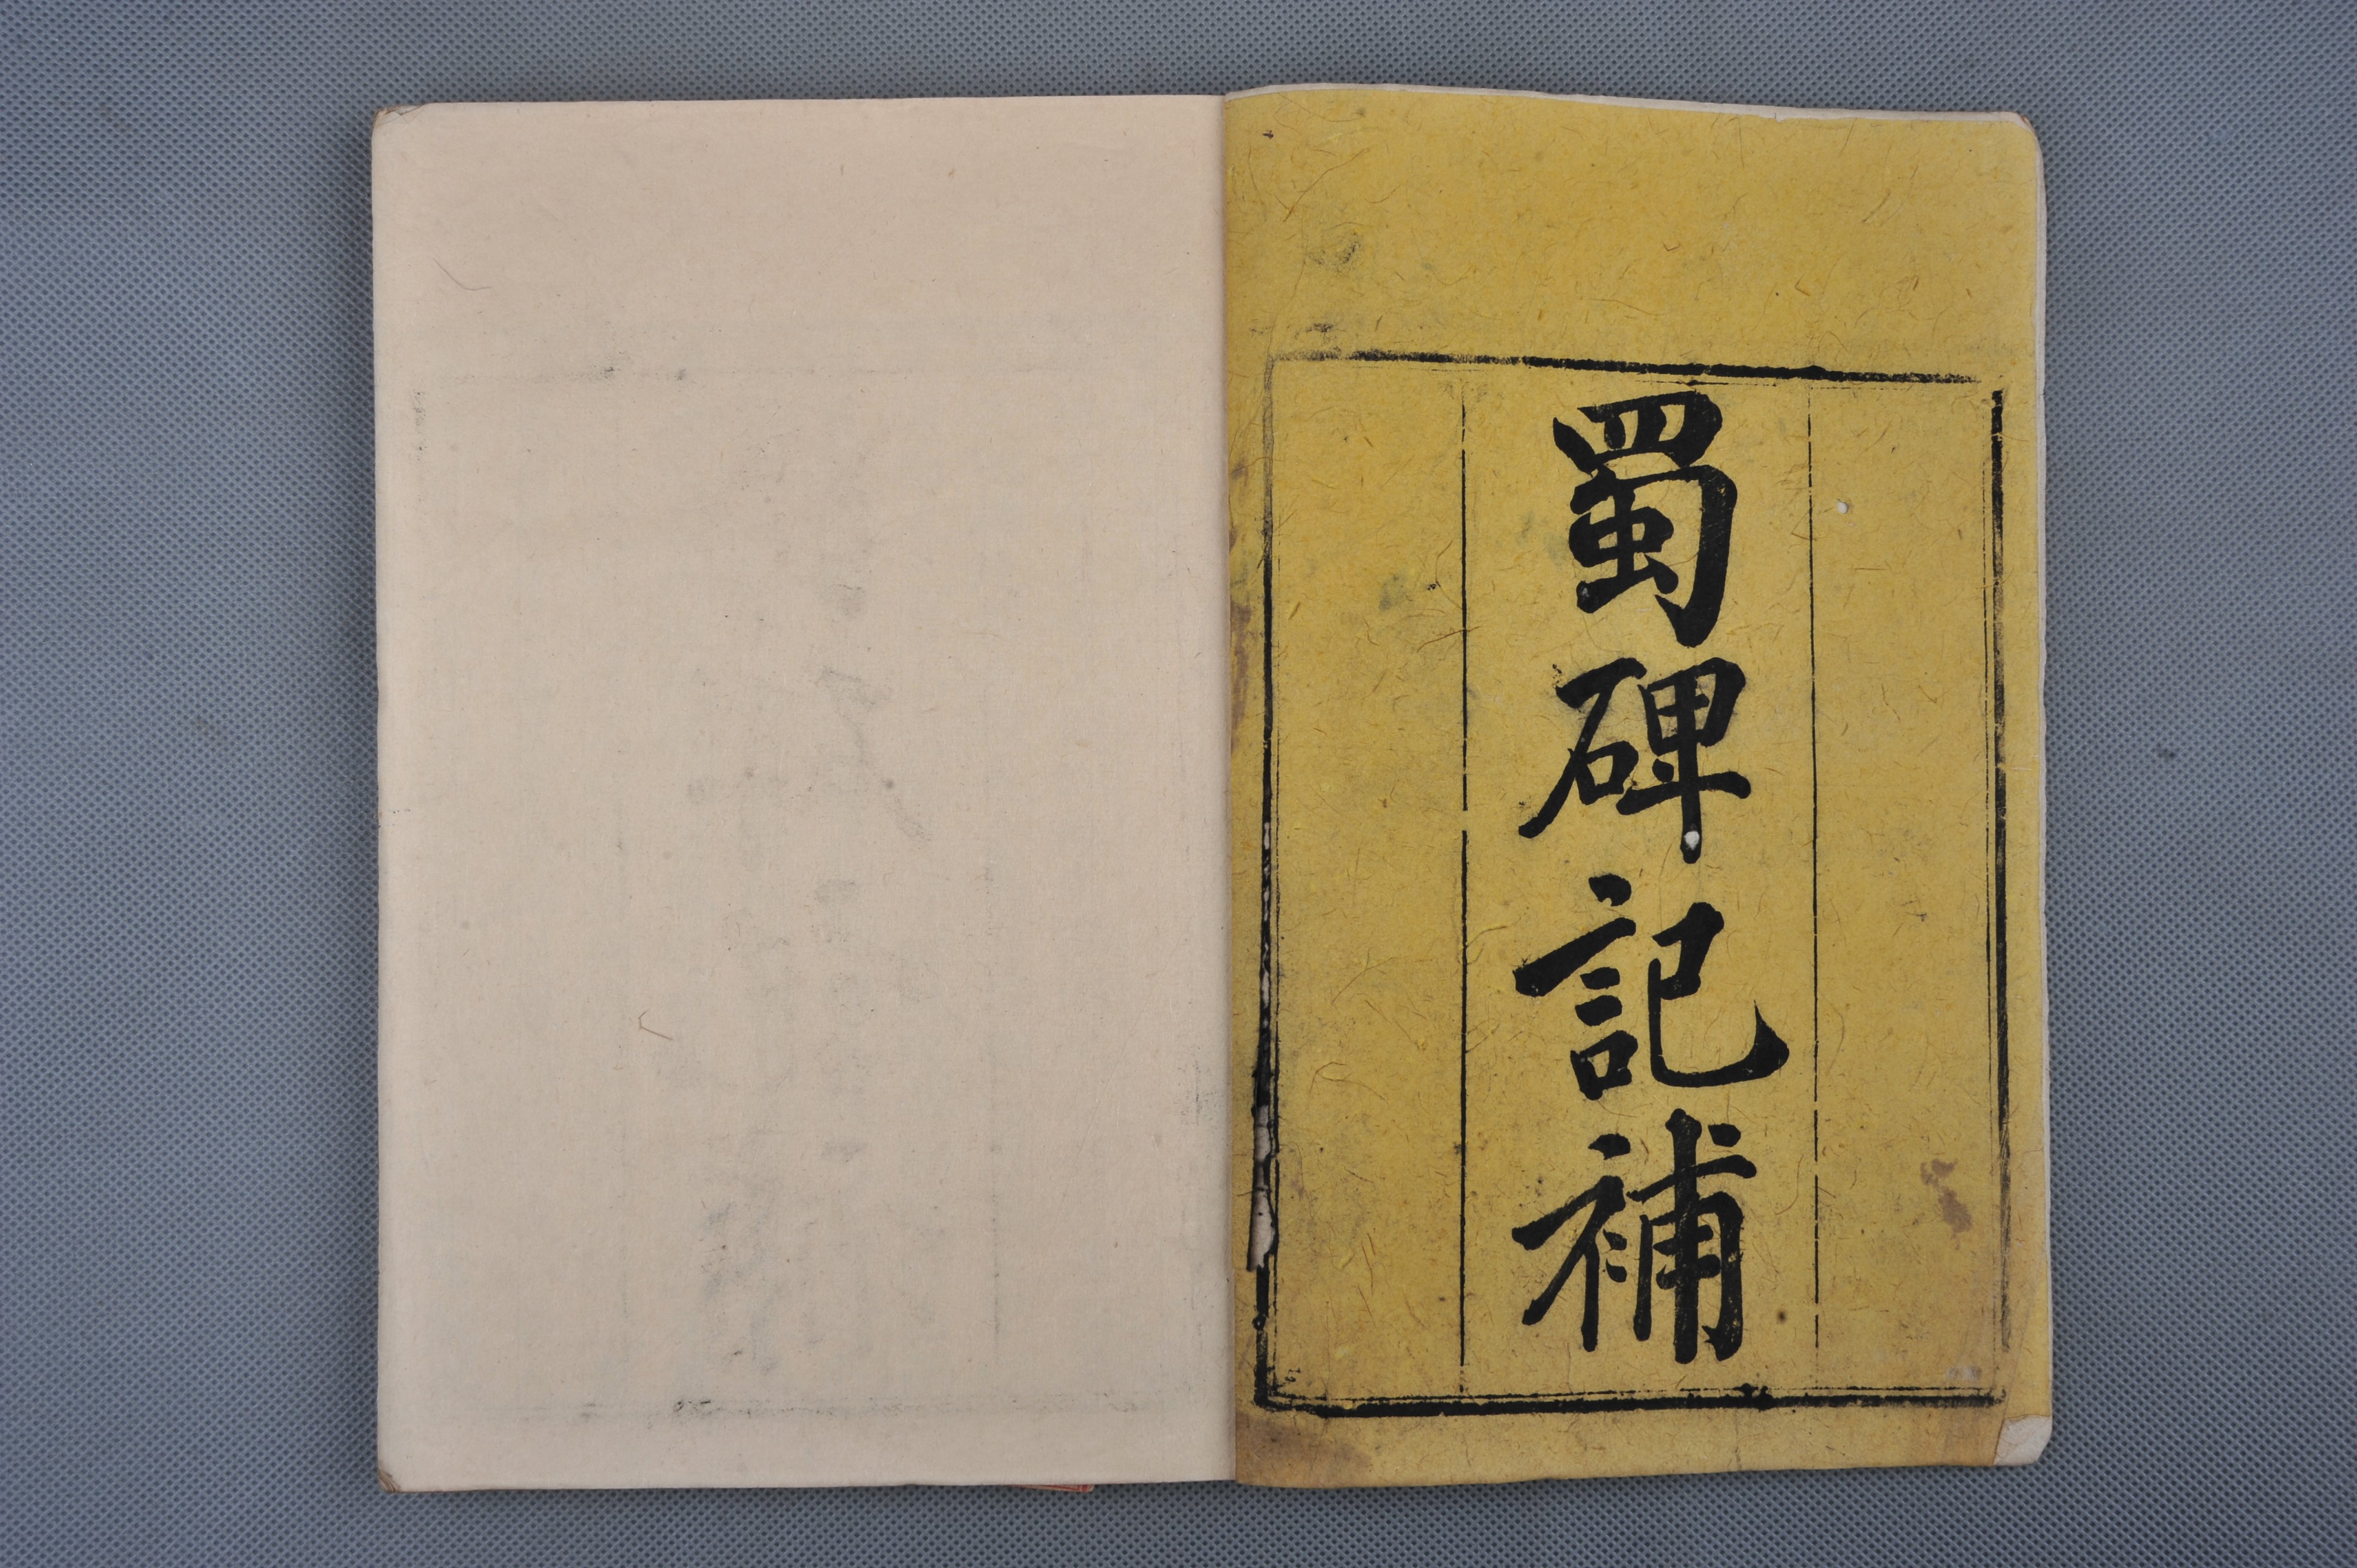 蜀碑記補